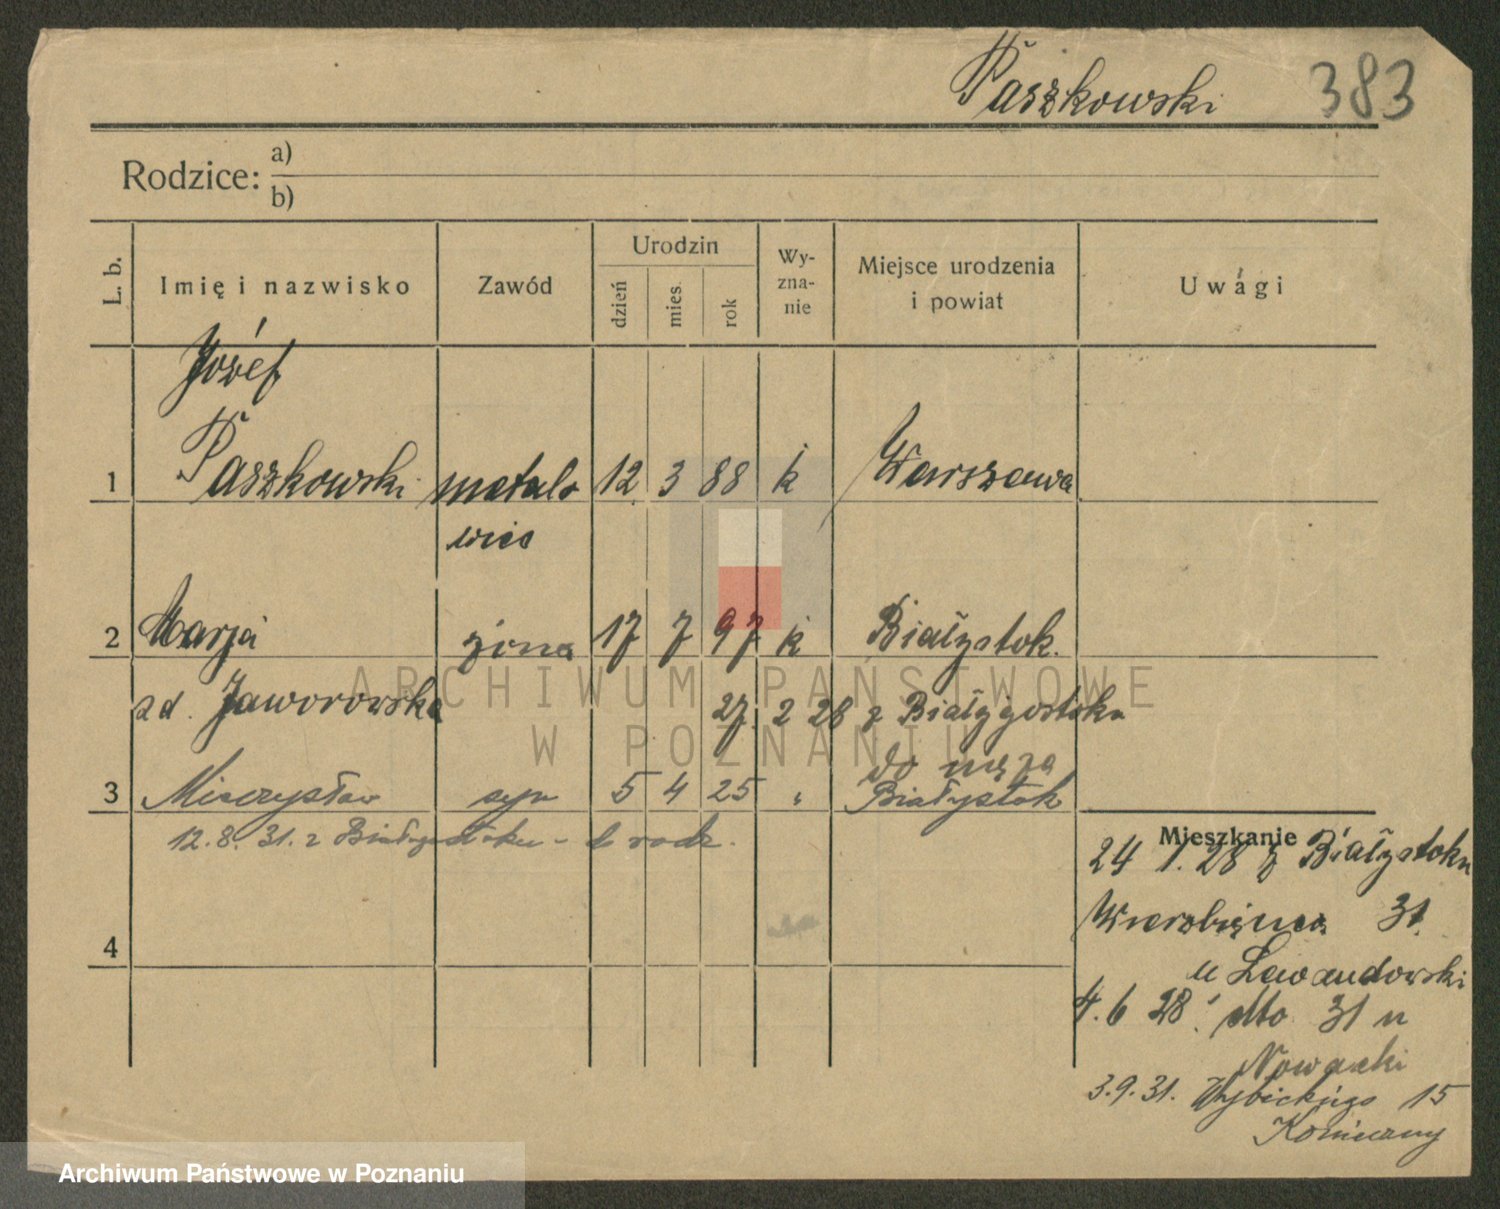 Paszkowski 383
Rodzice: a)
b)
L. b. Imię i nazwisko Zawód Urodzin dzień mies. rok Wy-zna-nie Miejsce urodzenia i powiat Uwagi
Józef
1 Paszkowski metalo 12 3 88 k Warszawa
wiec
2 Marja żona 17 7 97 k Białystok.
zd. Jaworowska 27. 2 28 z Białygostoku
do męża
3 Mieczysław syn 5 4 25 " Białystok
12.8.31. z Białegostoku - do rodz.
4
Mieszkanie
24 1. 28 z Białystoku
Wierzbięcice 31.
u Lewandowski
4. 6 28. dtto 31 u
Nowacki
3.9.31. Wybickiego 15
Konieczny
ARCHIWUM PAŃSTWOWE
W POZNANIU
Archiwum Państwowe w Poznaniu